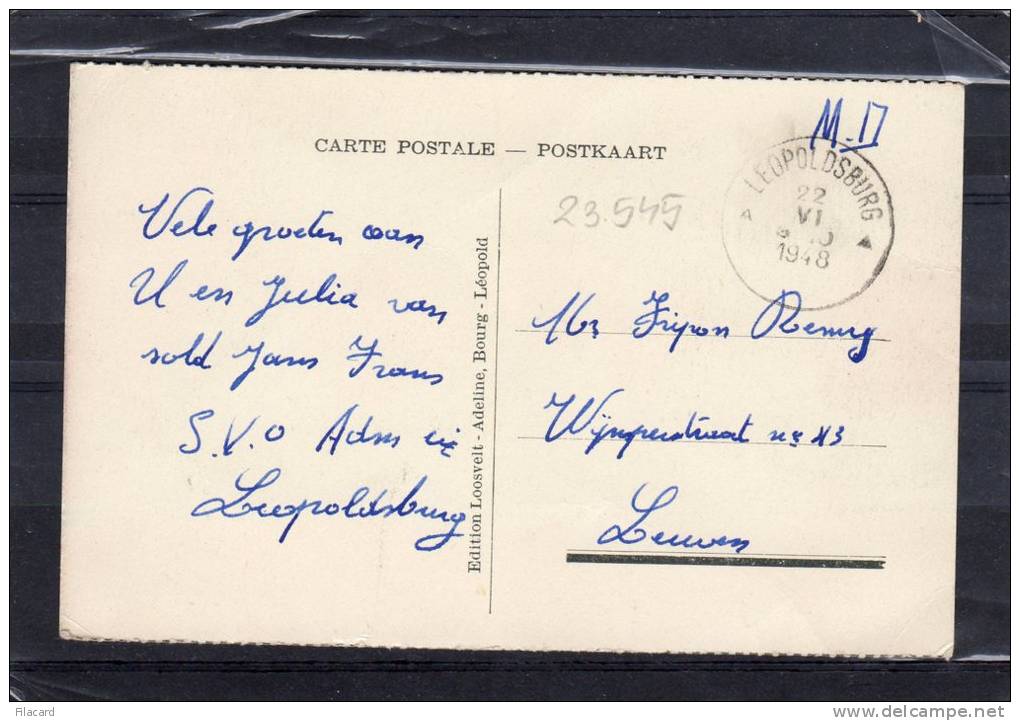 CARTE POSTALE — POSTKAART
M.D
LEOPOLDSBURG
22
VI
1948
A
23.545
Vele groeten aan
U en Julia van
sold Jans Frans
S.V.O Adm cie
Leopoldsburg
Edition Loosvelt - Adeline, Bourg - Léopold
Mr Fripon Remy
straat nr 43
Leuven
Filacard
delcampe.net